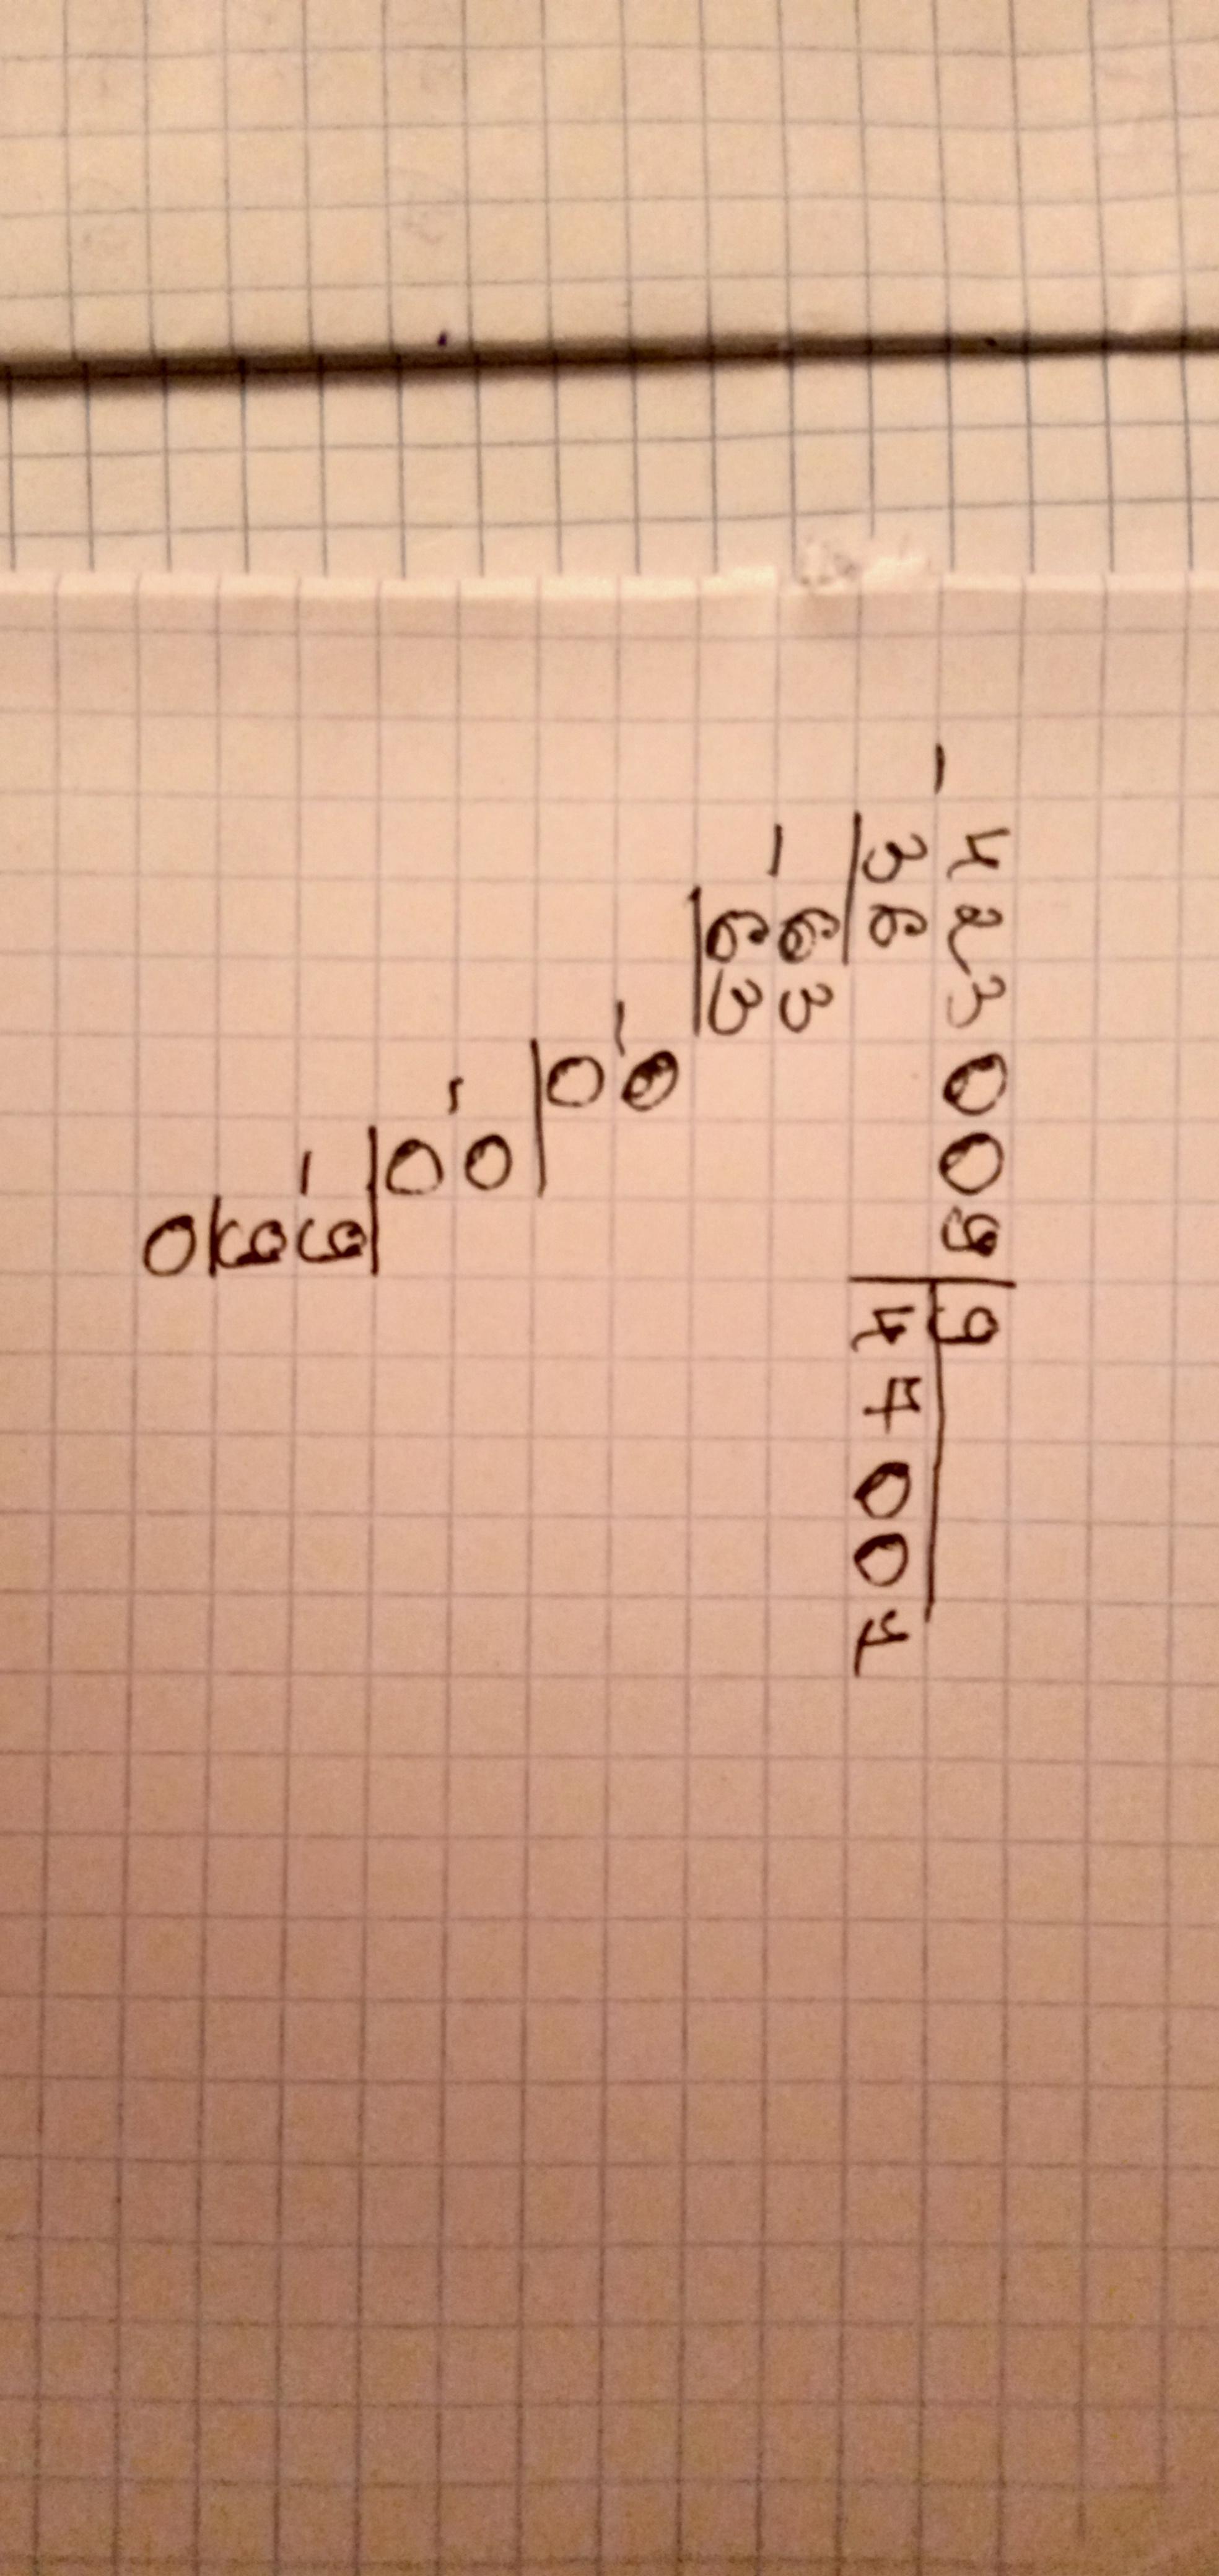 - 423009 | 9
36 | 47001
- 63
63
- 00
0
- 0
0
- 9
9
0